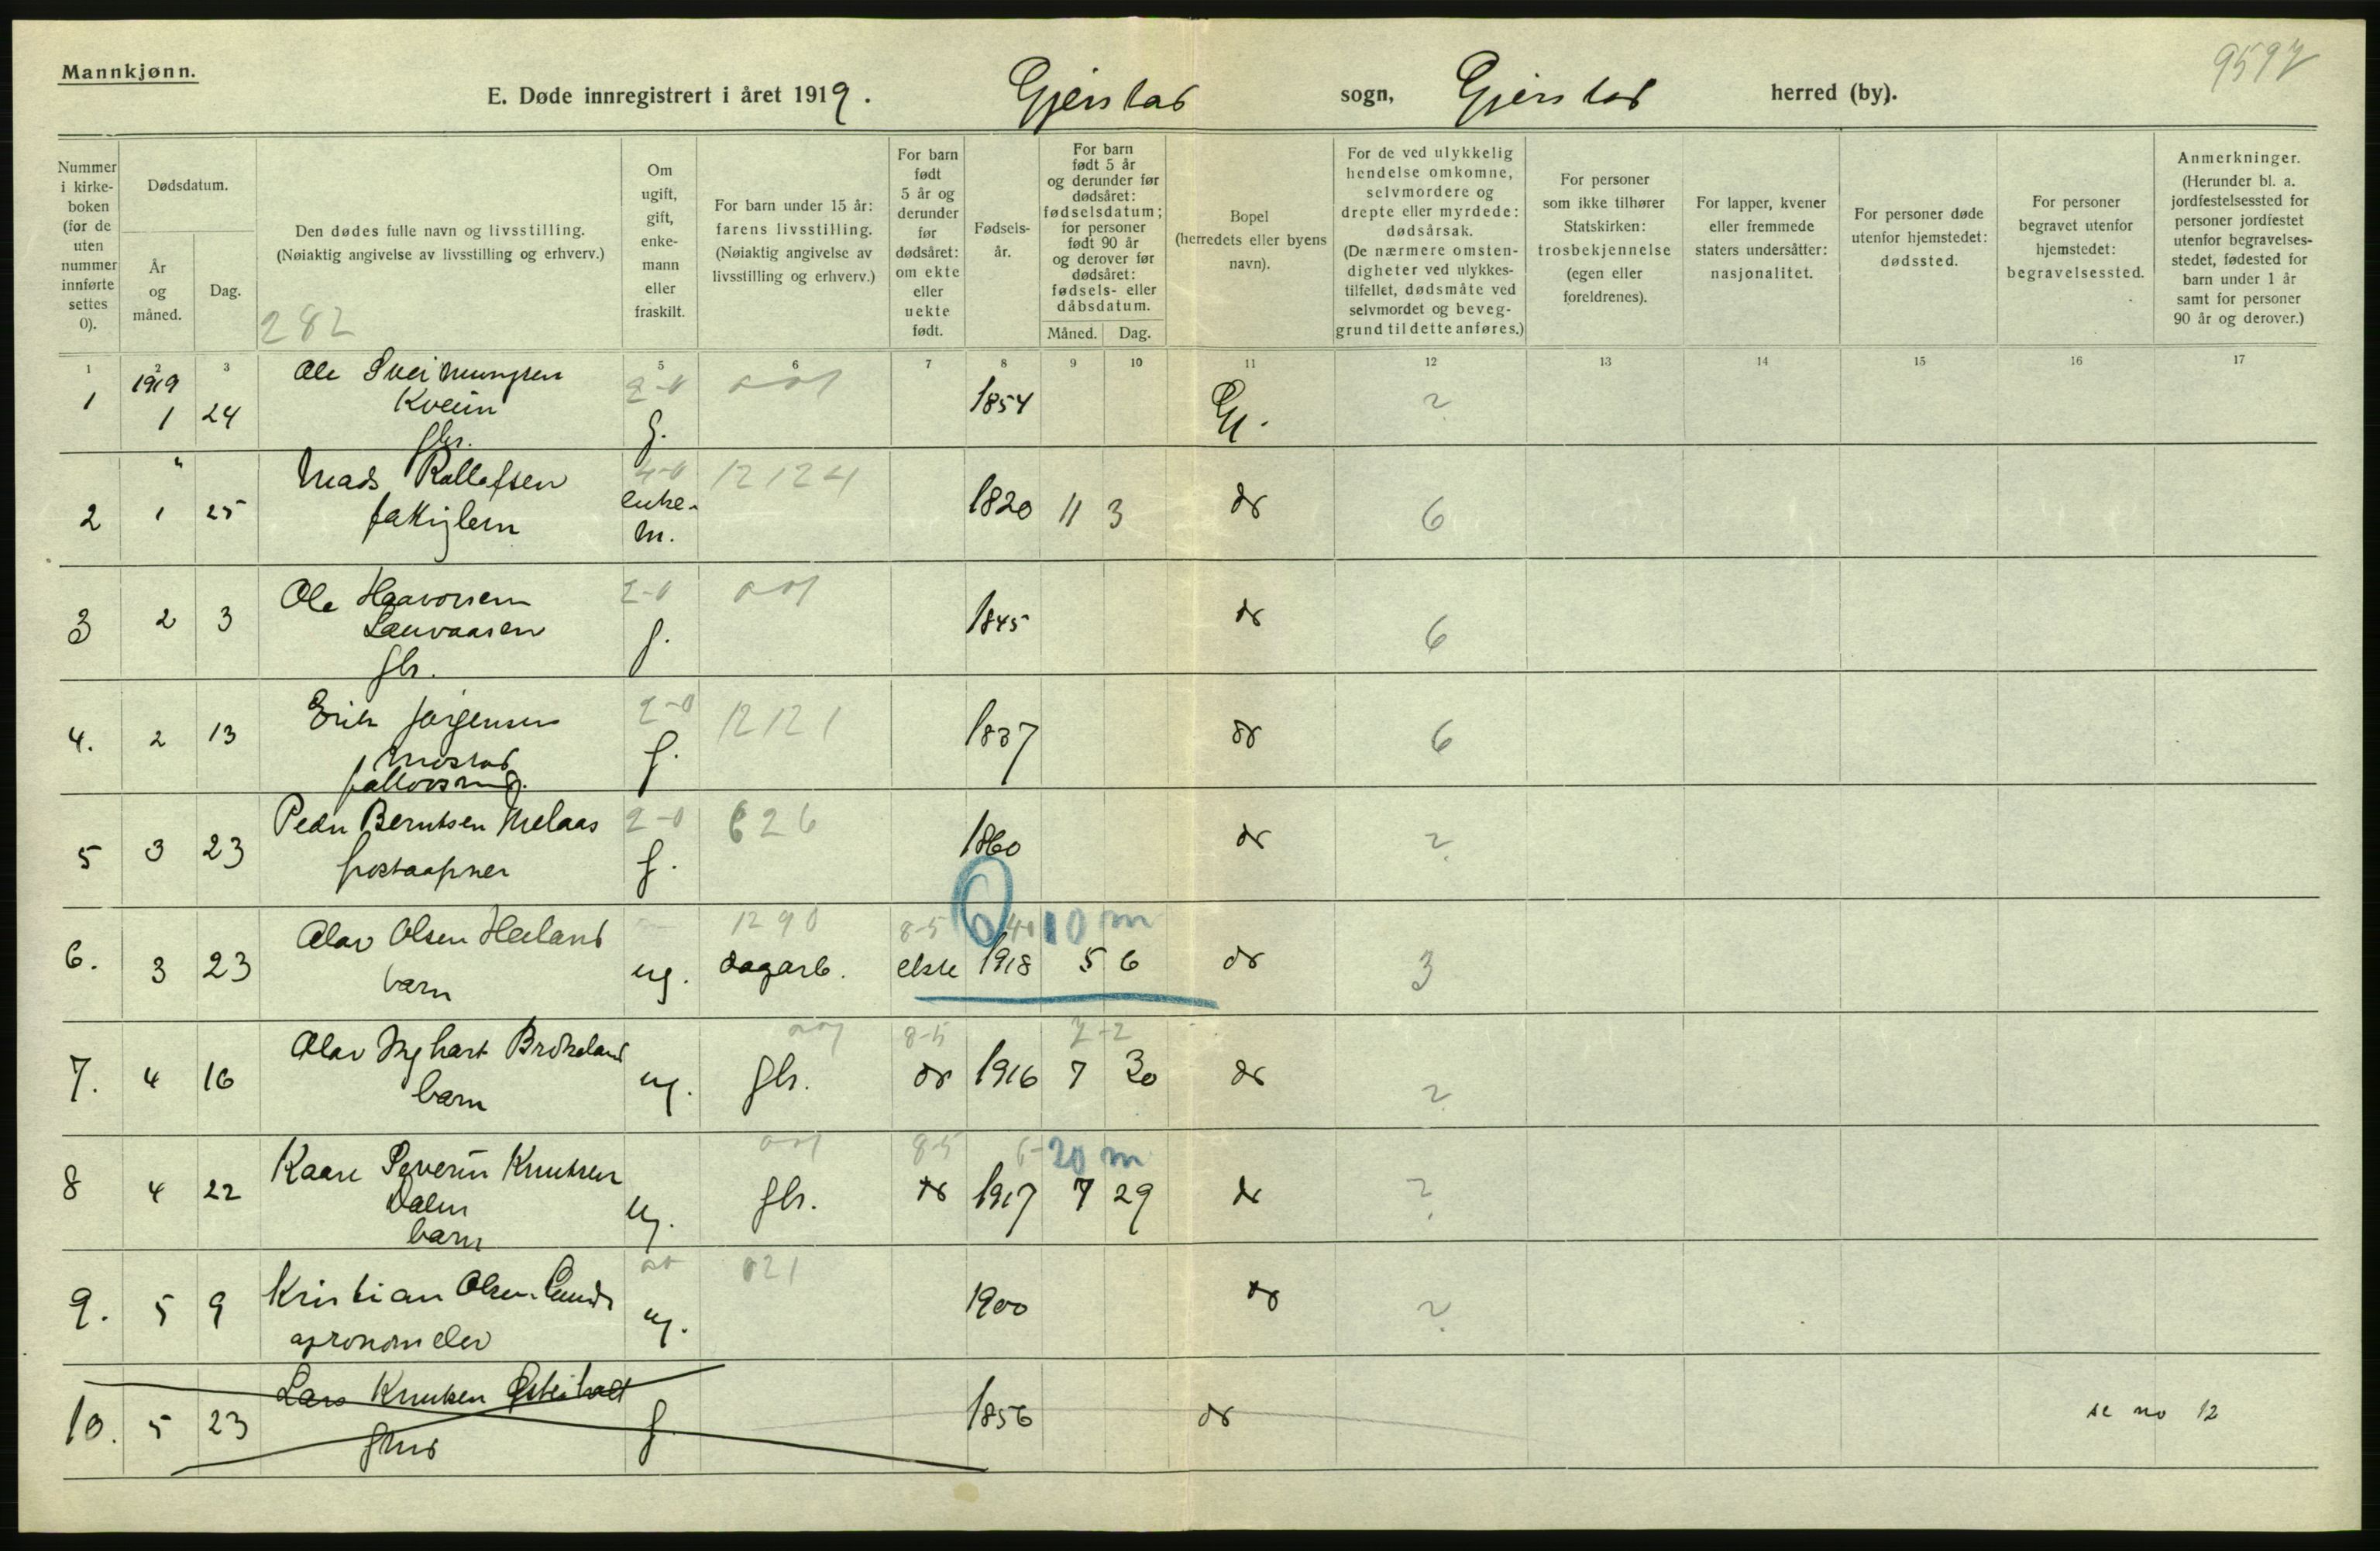 Mannkjønn.
9597
E. Døde innregistrert i året 1919. Gjerstad sogn, Gjerstad herred (by).
Nummer i kirke- boken (for de uten nummer innførte settes 0).
Dødsdatum.
År og måned.
Dag.
Den dødes fulle navn og livsstilling.
(Nøiaktig angivelse av livsstilling og erhverv.)
282
Om ugift, gift, enke- mann eller fraskilt.
For barn under 15 år: farens livsstilling.
(Nøiaktig angivelse av livsstilling og erhverv.)
For barn født 5 år og derunder før dødsåret: om ekte eller uekte født.
Fødsels- år.
For barn født 5 år og derunder før dødsåret: fødselsdatum; for personer født 90 år og derover før dødsåret: fødsels- eller dåbsdatum.
Måned. Dag.
Bopel (herredets eller byens navn).
For de ved ulykkelig hendelse omkomne, selvmordere og drepte eller myrdede: dødsårsak.
(De nærmere omsten- digheter ved ulykkes- tilfellet, dødsmåte ved selvmordet og beveg- grund til dette anføres.)
For personer som ikke tilhører Statskirken: trosbekjennelse (egen eller foreldrenes).
For lapper, kvener eller fremmede staters undersåtter: nasjonalitet.
For personer døde utenfor hjemstedet: dødssted.
For personer begravet utenfor hjemstedet: begravelsessted.
Anmerkninger.
(Herunder bl. a. jordfestelsessted for personer jordfestet utenfor begravelses- stedet, fødested for barn under 1 år samt for personer 90 år og derover.)
1 2 3 5 6 7 8 9 10 11 12 13 14 15 16 17
1 1919 1 24 Ole Sveinungsen Kveim gbr. 2-0 g. 001 1854 Gj. ?
2 " 1 25 Mads Rollefsen fattiglem 4-0 enke- m. 12124 1820 11 3 do 6
3 2 3 Ole Haavorsen Lauvaasen gbr. 2-0 g. 001 1845 do 6
4. 2 13 Erik Jørgensen 2-0 g. 12121 1837 do 6
5 3 23 Peder Berntsen Melaas postaapner 2-0 g. 626 1860 do ?
6. 3 23 Olav Olsen Heiland barn ug. 1290 dagarb. 8-5 ekte 1918 10 m 5 6 do 3
7. 4 16 Olav barn ug. 001 gbr. 8-5 do 1916 2-2 7 30 do ?
8 4 22 Kaare Severin Knutsen Dalen barn ug. 001 gbr. 8-5 do 1917 20 m 7 29 do ?
9. 5 9 Kristian Olsen Lunde agronomelev ug. 021 1900 do ?
10. 5 23 Lars Knutsen Østerholt g 1856 do se no 12